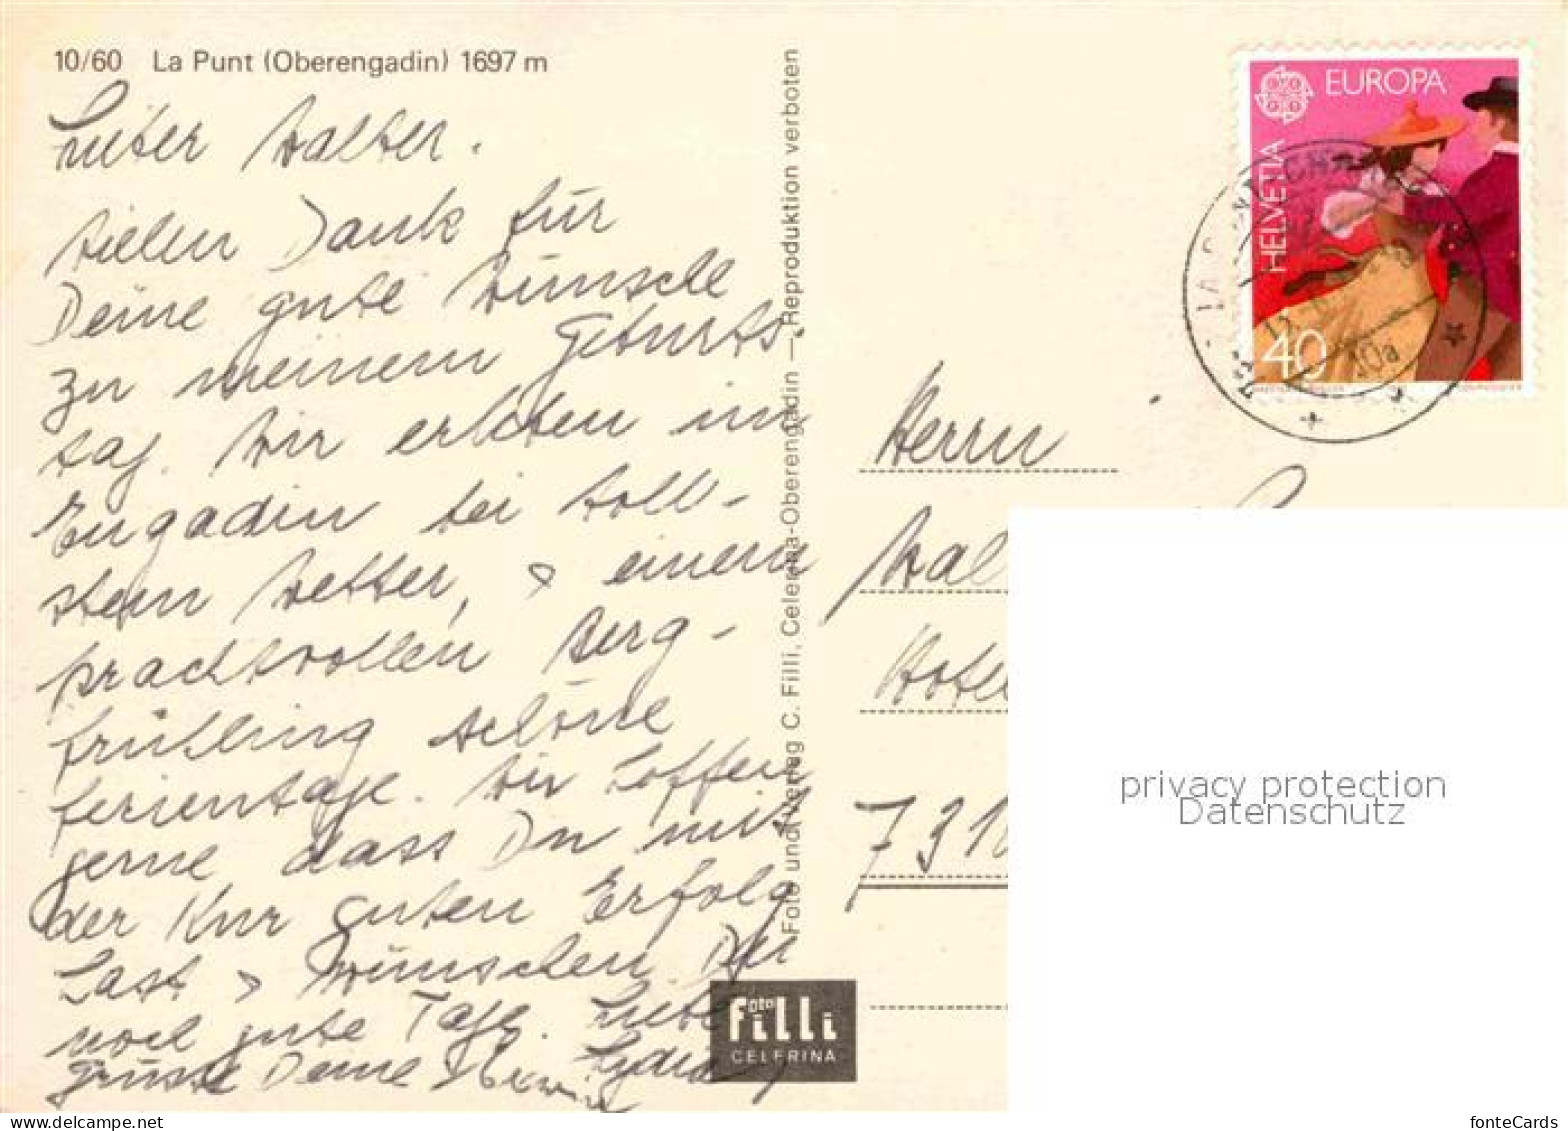 10/60 La Punt (Oberengadin) 1697 m
Lieber Walter.
Vielen Dank für
Deine gute Wünsche
zu meinem Geburts-
tag. Wir erleben im
Engadin bei toll-
stem Wetter, & einem
prachtvollen Berg-
frühling schöne
Ferientage. Wir hoffen
gerne dass Du mit
der Kur guten Erfolg
hast & wünschen Dir
noch gute Tage. Liebe
Grüsse Deine
Lydia
Foto und Verlag C. Filli, Celerina-Oberengadin — Reproduktion verboten
foto
filli
CELERINA
EUROPA
HELVETIA
40
10a
Herrn
Wal
Hotel
731
privacy protection
Datenschutz
www.delcampe.net
fonteCards